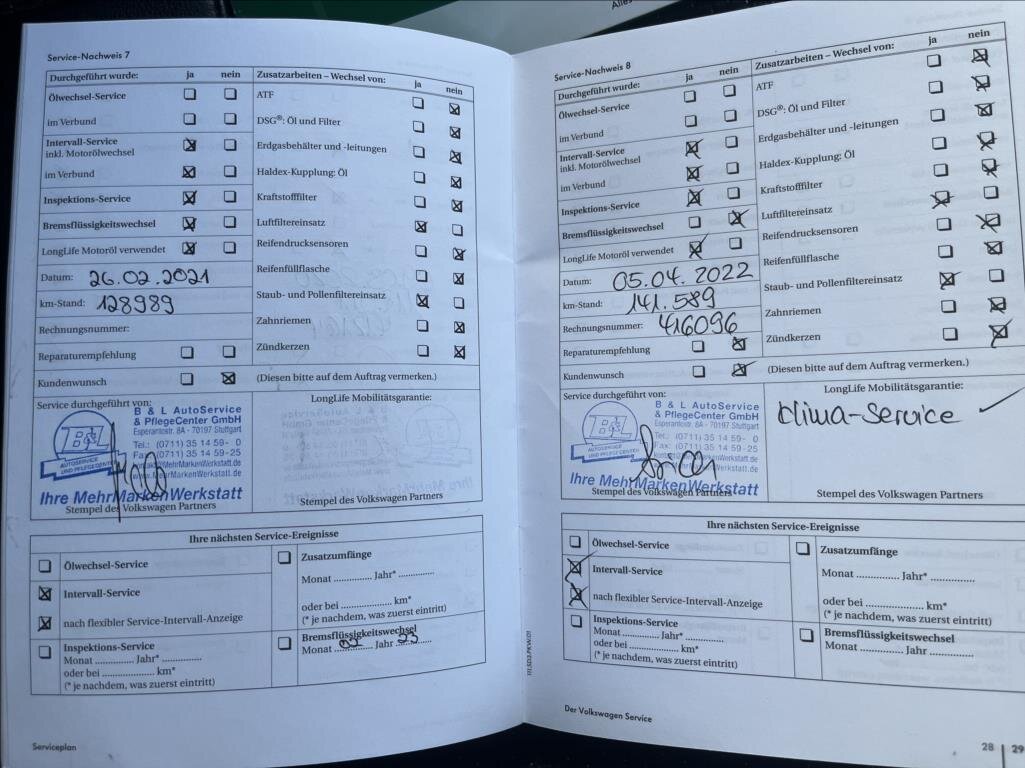 Alles
Service-Nachweis 7
Durchgeführt wurde: ja nein
Ölwechsel-Service
im Verbund
Intervall-Service
inkl. Motorölwechsel
im Verbund
Inspektions-Service
Bremsflüssigkeitswechsel
LongLife Motoröl verwendet
Datum: 26.02.2021
km-Stand: 128989
Rechnungsnummer:
Reparaturempfehlung
Kundenwunsch
Zusatzarbeiten – Wechsel von: ja nein
ATF
DSG®: Öl und Filter
Erdgasbehälter und -leitungen
Haldex-Kupplung: Öl
Kraftstofffilter
Luftfiltereinsatz
Reifendrucksensoren
Reifenfüllflasche
Staub- und Pollenfiltereinsatz
Zahnriemen
Zündkerzen
(Diesen bitte auf dem Auftrag vermerken.)
Service durchgeführt von:
B & L AutoService
& PflegeCenter GmbH
Esperantostr. 8A - 70197 Stuttgart
Tel.: (0711) 35 14 59- 0
Fax: (0711) 35 14 59-25
kontakt@MehrMarkenWerkstatt.de
www.MehrMarkenWerkstatt.de
B&L
AUTOSERVICE
UND PFLEGECENTER
Ihre MehrMarkenWerkstatt
Stempel des Volkswagen Partners
LongLife Mobilitätsgarantie:
Stempel des Volkswagen Partners
Ihre nächsten Service-Ereignisse
Ölwechsel-Service
Intervall-Service
nach flexibler Service-Intervall-Anzeige
Inspektions-Service
Monat ............. Jahr* .............
oder bei ................. km*
(* je nachdem, was zuerst eintritt)
Zusatzumfänge
Monat ............. Jahr* .............
oder bei ................. km*
(* je nachdem, was zuerst eintritt)
Bremsflüssigkeitswechsel
Monat 02 Jahr 23
Serviceplan
Service-Nachweis 8
Durchgeführt wurde: ja nein
Ölwechsel-Service
im Verbund
Intervall-Service
inkl. Motorölwechsel
im Verbund
Inspektions-Service
Bremsflüssigkeitswechsel
LongLife Motoröl verwendet
Datum: 05.04.2022
km-Stand: 141.589
Rechnungsnummer: 416096
Reparaturempfehlung
Kundenwunsch
Zusatzarbeiten – Wechsel von: ja nein
ATF
DSG®: Öl und Filter
Erdgasbehälter und -leitungen
Haldex-Kupplung: Öl
Kraftstofffilter
Luftfiltereinsatz
Reifendrucksensoren
Reifenfüllflasche
Staub- und Pollenfiltereinsatz
Zahnriemen
Zündkerzen
(Diesen bitte auf dem Auftrag vermerken.)
Service durchgeführt von:
B & L AutoService
& PflegeCenter GmbH
Esperantostr. 8A - 70197 Stuttgart
Tel.: (0711) 35 14 59- 0
Fax: (0711) 35 14 59-25
kontakt@MehrMarkenWerkstatt.de
www.MehrMarkenWerkstatt.de
B&L
AUTOSERVICE
UND PFLEGECENTER
Ihre MehrMarkenWerkstatt
Stempel des Volkswagen Partners
LongLife Mobilitätsgarantie:
Klima-Service ✓
Stempel des Volkswagen Partners
Ihre nächsten Service-Ereignisse
Ölwechsel-Service
Intervall-Service
nach flexibler Service-Intervall-Anzeige
Inspektions-Service
Monat ............. Jahr* .............
oder bei ................. km*
(* je nachdem, was zuerst eintritt)
Zusatzumfänge
Monat ............. Jahr* .............
oder bei ................. km*
(* je nachdem, was zuerst eintritt)
Bremsflüssigkeitswechsel
Monat ............. Jahr .............
Der Volkswagen Service
28 | 29